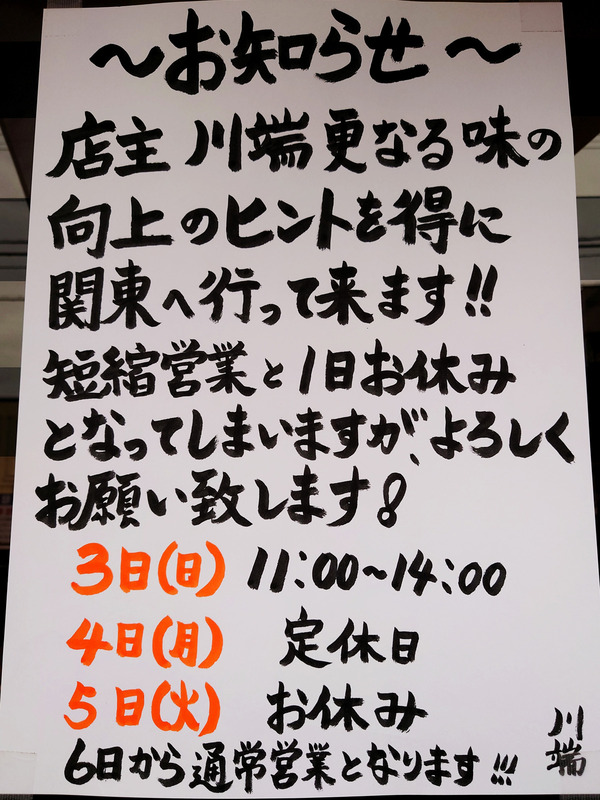 〜お知らせ〜
店主 川端更なる味の
向上のヒントを得に
関東へ行って来ます!!
短縮営業と1日お休み
となってしまいますが、よろしく
お願い致します!
3日(日) 11:00〜14:00
4日(月) 定休日
5日(火) お休み
6日から通常営業となります!!!
川端